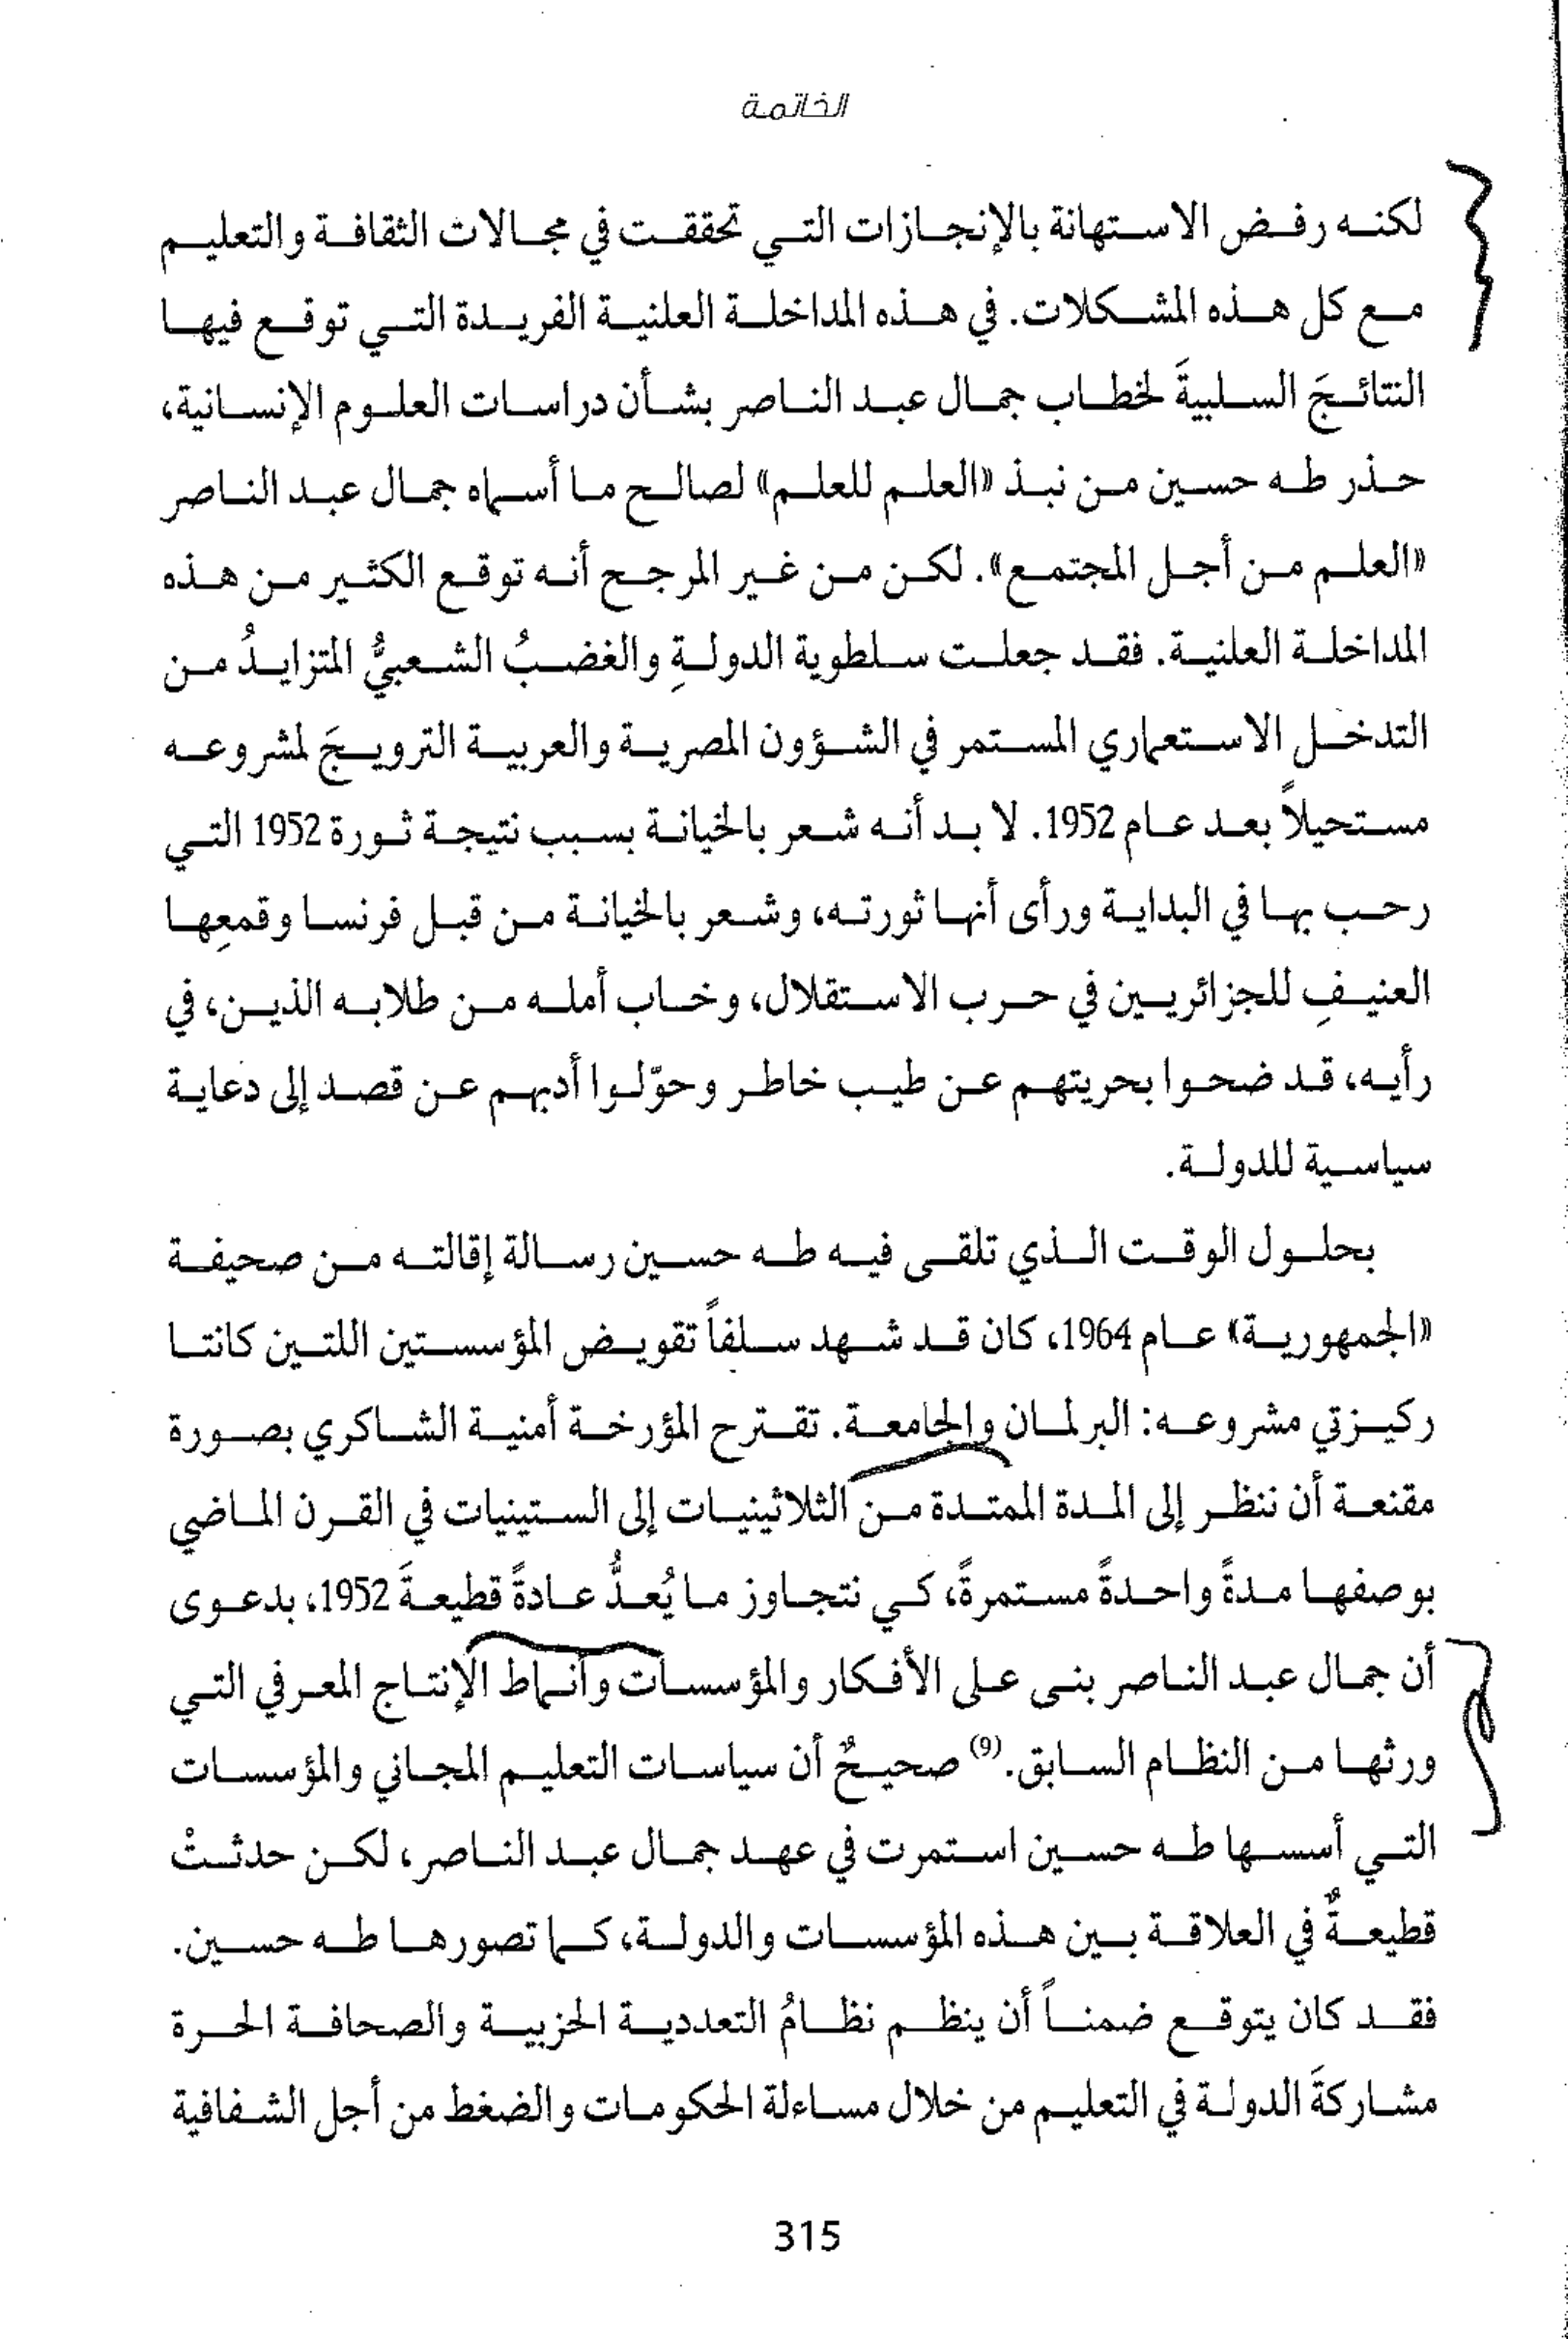 الخاتمة
لكنه رفض الاستهانة بالإنجازات التي تحققت في مجالات الثقافة والتعليم
مع كل هذه المشكلات. في هذه المداخلة العلنية الفريدة التي توقع فيها
النتائجَ السلبيةَ لخطاب جمال عبد الناصر بشأن دراسات العلوم الإنسانية،
حذر طه حسين من نبذ «العلم للعلم» لصالح ما أسماه جمال عبد الناصر
«العلم من أجل المجتمع». لكن من غير المرجح أنه توقع الكثير من هذه
المداخلة العلنية. فقد جعلت سلطوية الدولةِ والغضبُ الشعبيُّ المتزايدُ من
التدخل الاستعماري المستمر في الشؤون المصرية والعربية الترويجَ لمشروعه
مستحيلاً بعد عام 1952. لا بد أنه شعر بالخيانة بسبب نتيجة ثورة 1952 التي
رحب بها في البداية ورأى أنها ثورته، وشعر بالخيانة من قبل فرنسا وقمعِها
العنيفِ للجزائريين في حرب الاستقلال، وخاب أمله من طلابه الذين، في
رأيه، قد ضحوا بحريتهم عن طيب خاطر وحوّلوا أدبهم عن قصد إلى دعاية
سياسية للدولة.
بحلول الوقت الذي تلقى فيه طه حسين رسالة إقالته من صحيفة
«الجمهورية» عام 1964، كان قد شهد سلفاً تقويض المؤسستين اللتين كانتا
ركيزتي مشروعه: البرلمان والجامعة. تقترح المؤرخة أمنية الشاكري بصورة
مقنعة أن ننظر إلى المدة الممتدة من الثلاثينيات إلى الستينيات في القرن الماضي
بوصفها مدةً واحدةً مستمرةً، كي نتجاوز ما يُعدُّ عادةً قطيعةَ 1952، بدعوى
أن جمال عبد الناصر بنى على الأفكار والمؤسسات وأنماط الإنتاج المعرفي التي
ورثها من النظام السابق.(9) صحيحٌ أن سياسات التعليم المجاني والمؤسسات
التي أسسها طه حسين استمرت في عهد جمال عبد الناصر، لكن حدثتْ
قطيعةٌ في العلاقة بين هذه المؤسسات والدولة، كما تصورها طه حسين.
فقد كان يتوقع ضمناً أن ينظم نظامُ التعددية الحزبية والصحافة الحرة
مشاركةَ الدولة في التعليم من خلال مساءلة الحكومات والضغط من أجل الشفافية
315